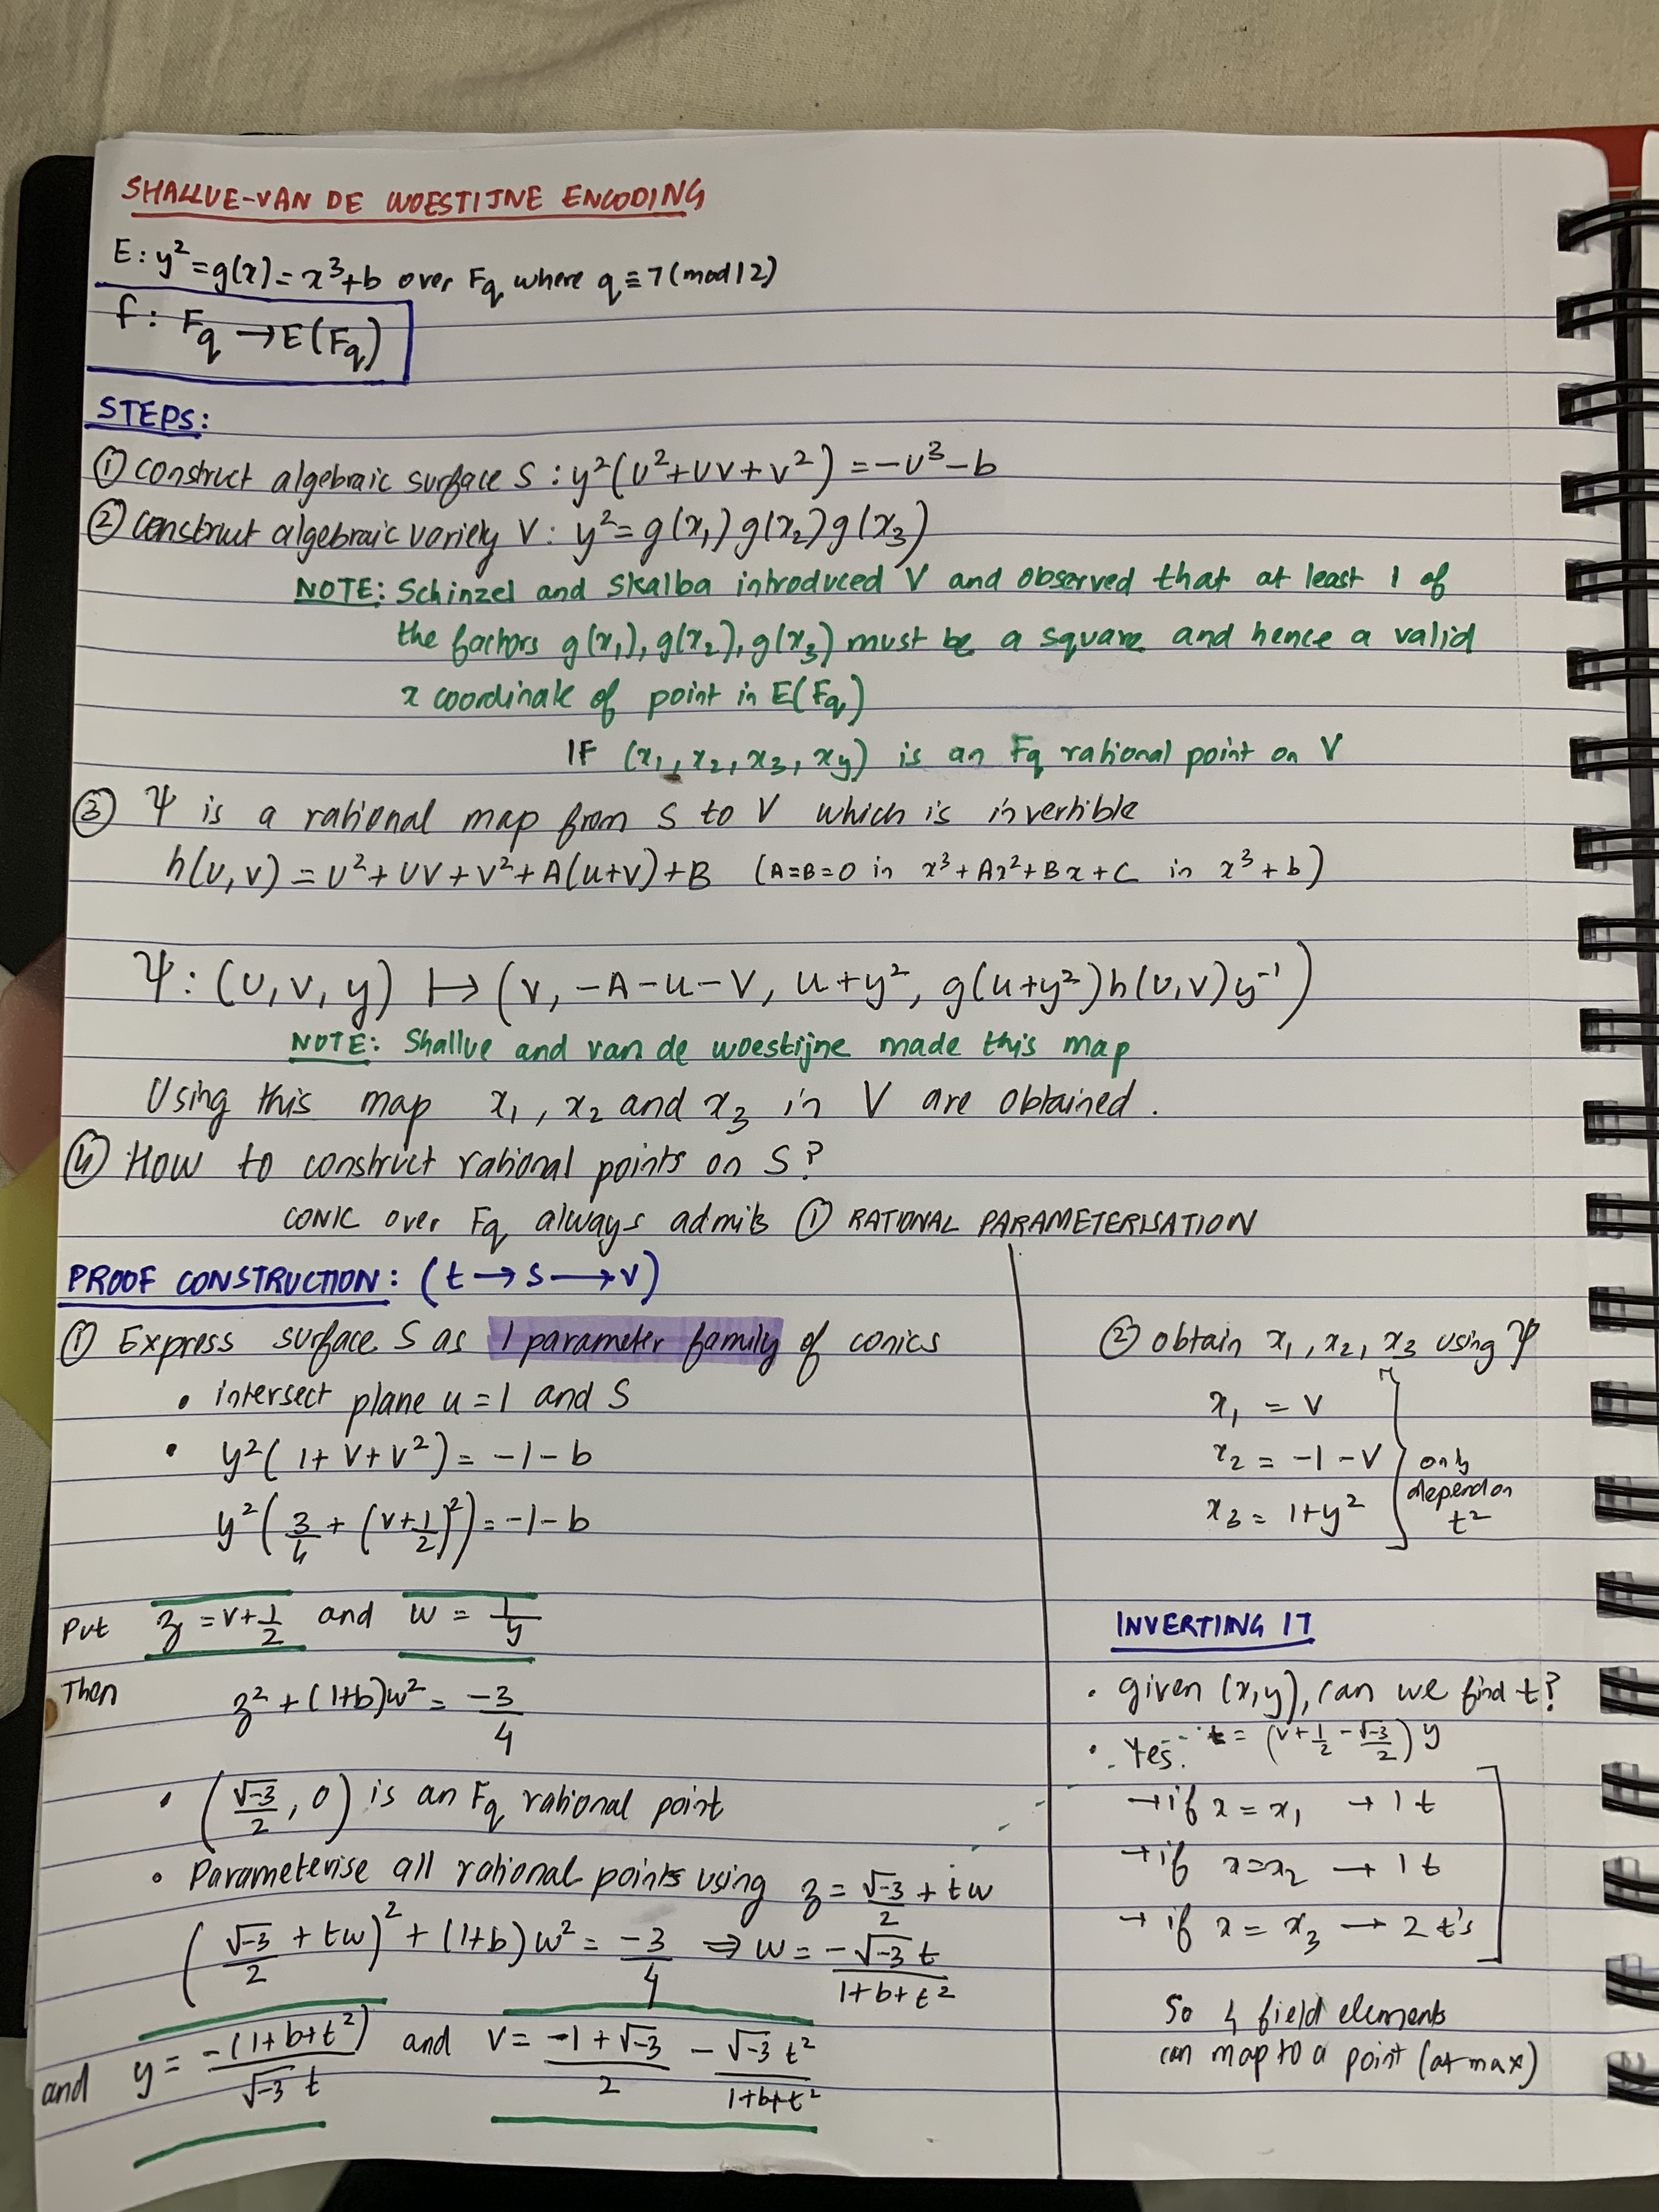 SHALLUE-VAN DE WOESTIJNE ENCODING
E: y² = g(x) = x³+b over Fq where q ≡ 7 (mod 12)
f: Fq → E(Fq)
STEPS:
① Construct algebraic surface S : y²(u²+uv+v²) = -u³-b
② construct algebraic variety V : y² = g(x₁) g(x₂) g(x₃)
NOTE: Schinzel and Skalba introduced V and observed that at least 1 of
the factors g(x₁), g(x₂), g(x₃) must be a square and hence a valid
x coordinate of point in E(Fq)
IF (x₁, x₂, x₃, xy) is an Fq rational point on V
③ Ψ is a rational map from S to V which is invertible
h(u,v) = u²+uv+v²+A(u+v)+B (A=B=0 in x³+Ax²+Bx+C in x³+b)
Ψ: (u,v,y) ↦ (v, -A-u-v, u+y², g(u+y²)h(u,v)y⁻¹)
NOTE: Shallue and van de woestijne made this map
Using this map x₁, x₂ and x₃ in V are obtained.
④ How to construct rational points on S?
CONIC over Fq always admits ① RATIONAL PARAMETERISATION
PROOF CONSTRUCTION: (t → S → V)
① Express surface S as 1 parameter family of conics
• intersect plane u=1 and S
• y²(1+v+v²) = -1-b
y²(3/4 + (v+1/2)²) = -1-b
Put z = v+1/2 and w = 1/y
Then z² + (1+b)w² = -3/4
• (√-3/2, 0) is an Fq rational point
• Parameterise all rational points using z = √-3/2 + tw
(√-3/2 + tw)² + (1+b)w² = -3/4 ⇒ w = -√-3 t/(1+b+t²)
and y = -(1+b+t²)/(√-3 t) and v = (-1+√-3)/2 - √-3 t²/(1+b+t²)
② obtain x₁, x₂, x₃ using Ψ
x₁ = v
x₂ = -1-v
x₃ = 1+y²
only
depend on
t²
INVERTING IT
• given (x,y), can we find t?
• Yes. t = (v+1/2 - √-3/2) y
→ if x = x₁ → 1 t
→ if x = x₂ → 1 t
→ if x = x₃ → 2 t's
So 4 field elements
can map to a point (at max)